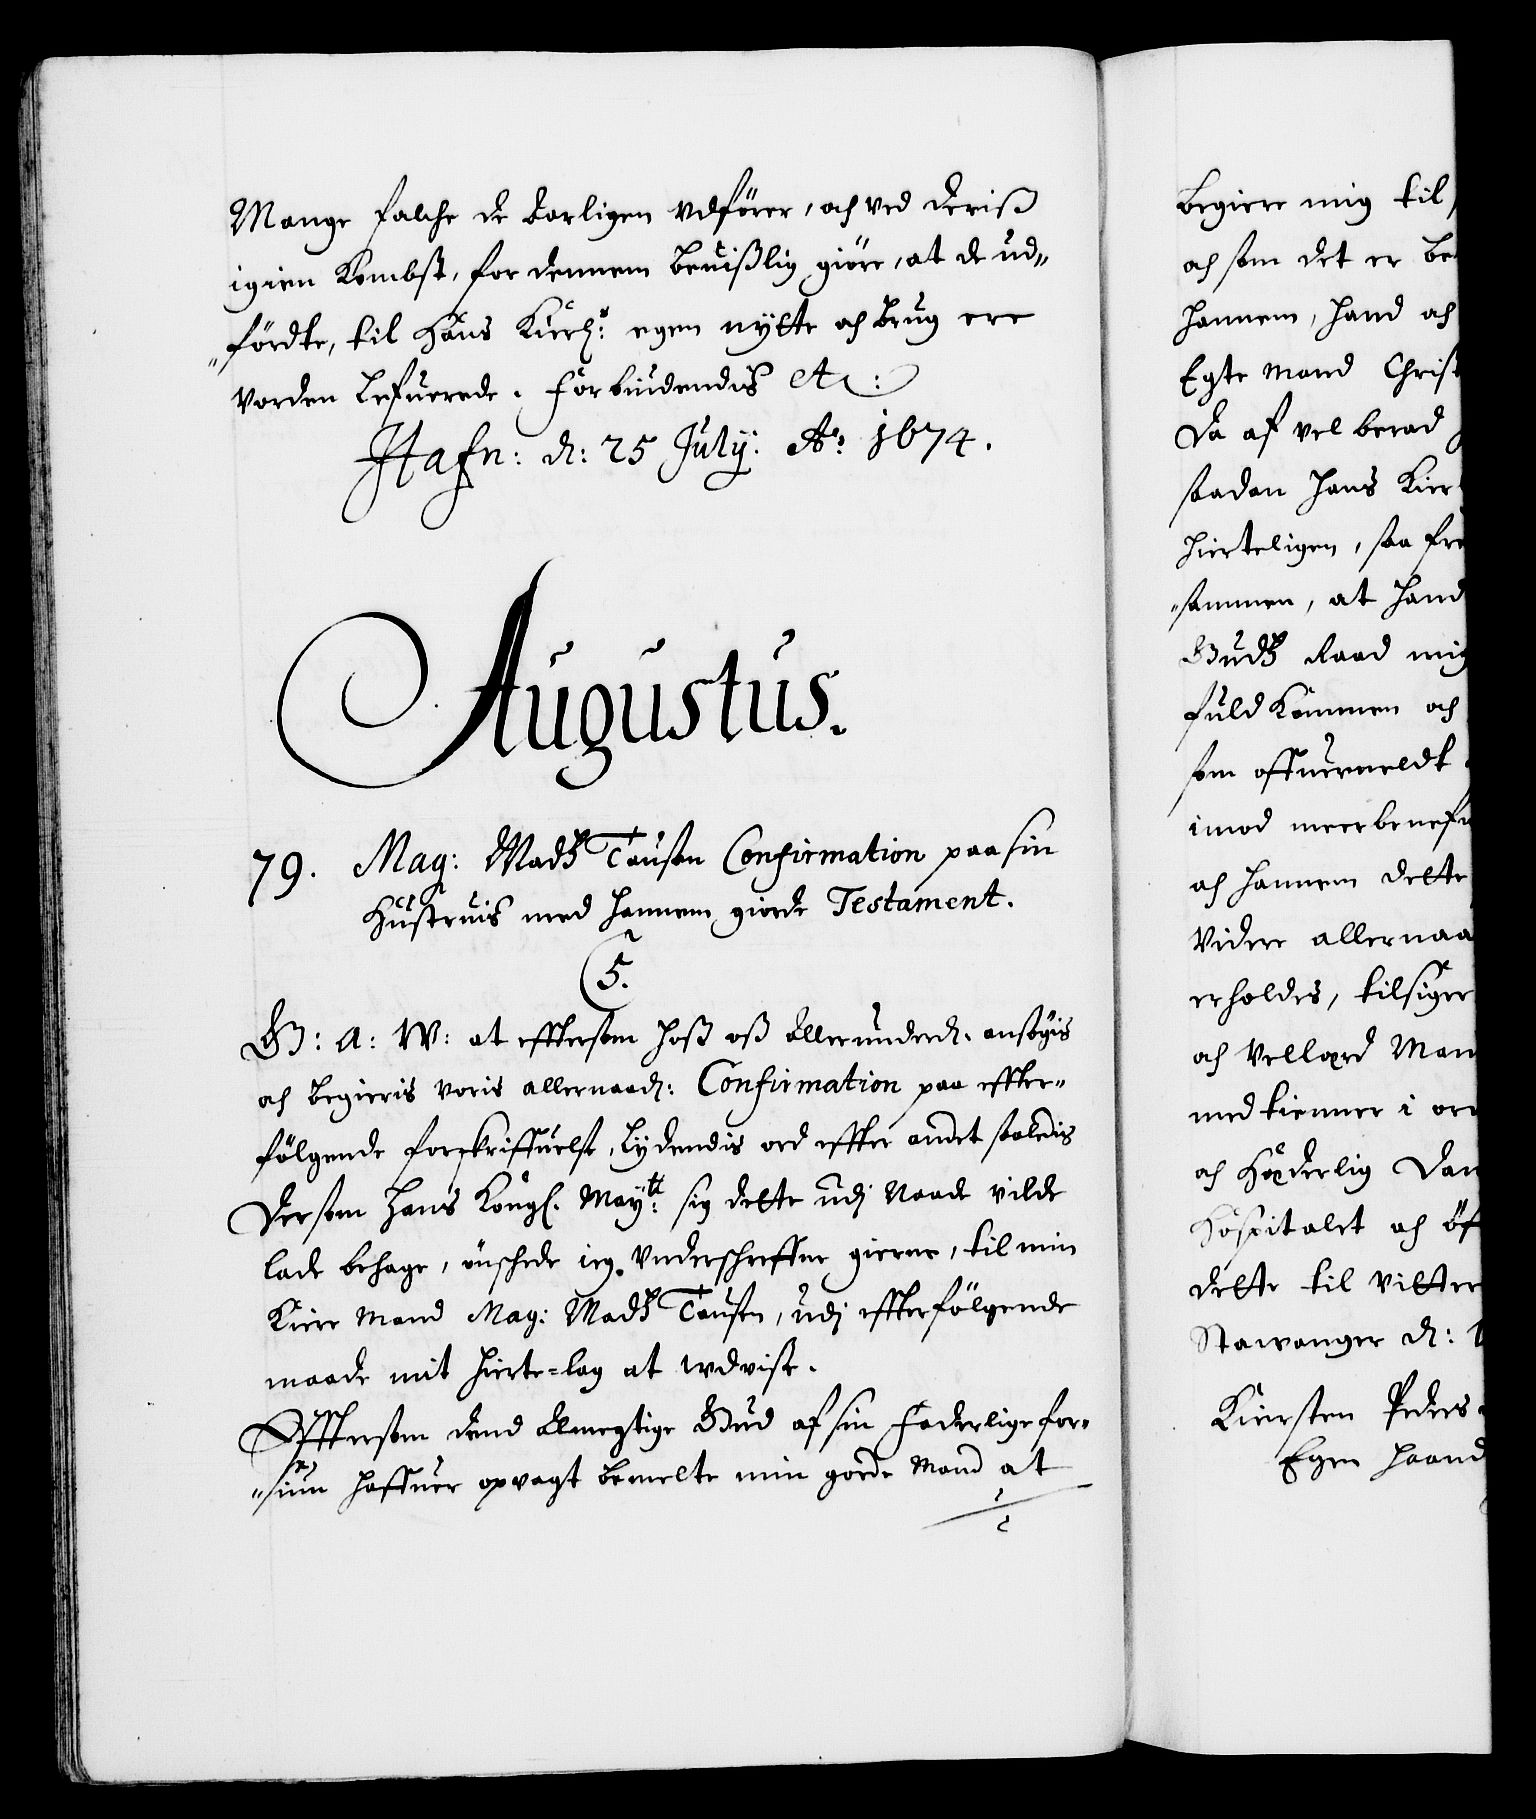 Mange falche de Aarligen vdfører, och ved deriß
igien Kombst, for dennem beuißlig giøre, at de ud„
„førdte, til Hans Kierl: egen nytte och brug ere
vorden lefuerede. Forbiudendis etc:
Hafn: d: 25 July. Ao: 1674.
Augustus.
79. Mag: Madtz Tausøn Confirmation paa sin
Hustruis med hannem giorde Testament.
5.
G: A: W: at efftersom hoß oß allerunderd: ansøgis
och begieris voris allernaad: Confirmation paa effter„
følgende forskriffuelse, lydendis ord effter andet saaledis
Dersom Hans Kongl. Maytt: sig dette udj Naade vilde
lade behage, ønschede ieg vnderschreffne gierne, til min
Kiere Mand Mag: Madtz Tausøn, udj effterfølgende
maade mit hierte-lag at udviise.
Efftersom dend Almegtige Gud af sin Faderlige for„
„siun haffuer opvagt bemelte min gode Mand at
begiere mig til
och som det er be
hannem, hand och
Egte Mand Christ
Da af vel berad
saadan hans Kier
hierteligen, saa fre
„sammen, at hand
Gudtz Raad mig
fuldkommen och
som offuermeldt
imod meerbenefn
och hannem dette
Videre allernaa
erholdes, tilsiger
och Vellærd Man
med kiender i ord
och Hæderlig Dan
Hospitalet och øf
dette til vitter
Stawanger d:
Kiersten Peders
Egen haand